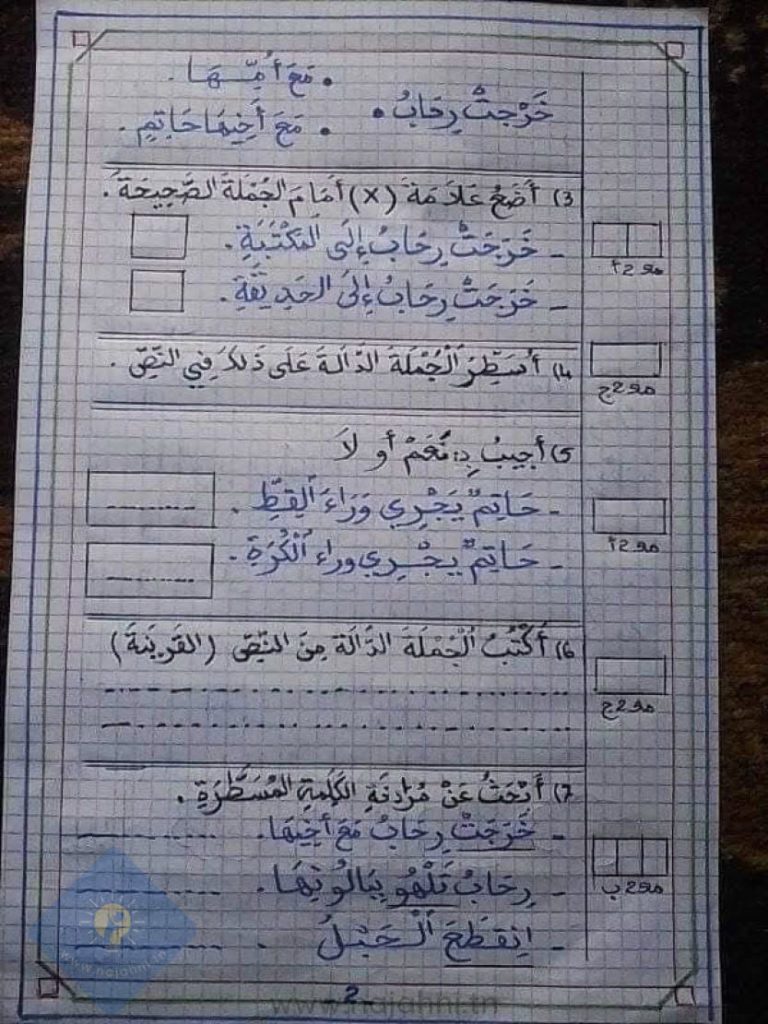 • مَعَ أُمِّـهَا.
خَرَجتْ رِحَابُ •
• مَعَ أَخِيهَا حَاتِمٍ.
3) أَضَعُ عَلاَمَةَ (X) أَمَامَ الجُمْلَةَ الصَّحِيحَةَ.
- خَرَجَتْ رِحَابُ إِلَى المَكْتَبَةِ.
مع2أ
- خَرَجَتْ رِحَابُ إِلَى الحَدِيقَةِ.
4) أُسَطِّرُ الْجُمْلَةَ الدَّالَةَ عَلَى ذَلِكَ فِي النَّصِّ.
مع2ج
5) أجِيبُ بِـ: نَعَمْ أو لاَ
- حَاتِمٌ يَجْرِي وَرَاءَ القِطِّ. ..........
مع2أ
- حَاتِمٌ يَجْرِي وراء الْكُرَةِ. ..........
6) أَكْتُبُ الْجُمْلَةَ الدَّالَة مِنَ النَّصِّ (القَرِينَة)
مع2ج
7) أَبْحَثُ عَنْ مُرَادِفَةِ الكَلِمَةِ المُسَطَّرَةِ.
- خَرَجَتْ رِحَابُ مَعَ أَخِيهَا. ..........
مع2ب
- رِحَابُ تَلْهُو بِبَالُونِهَا. ..........
- اِنقَطَعَ الْحَبْلُ . ..........
- 2 -
www.najahni.tn
www.najahni.tn